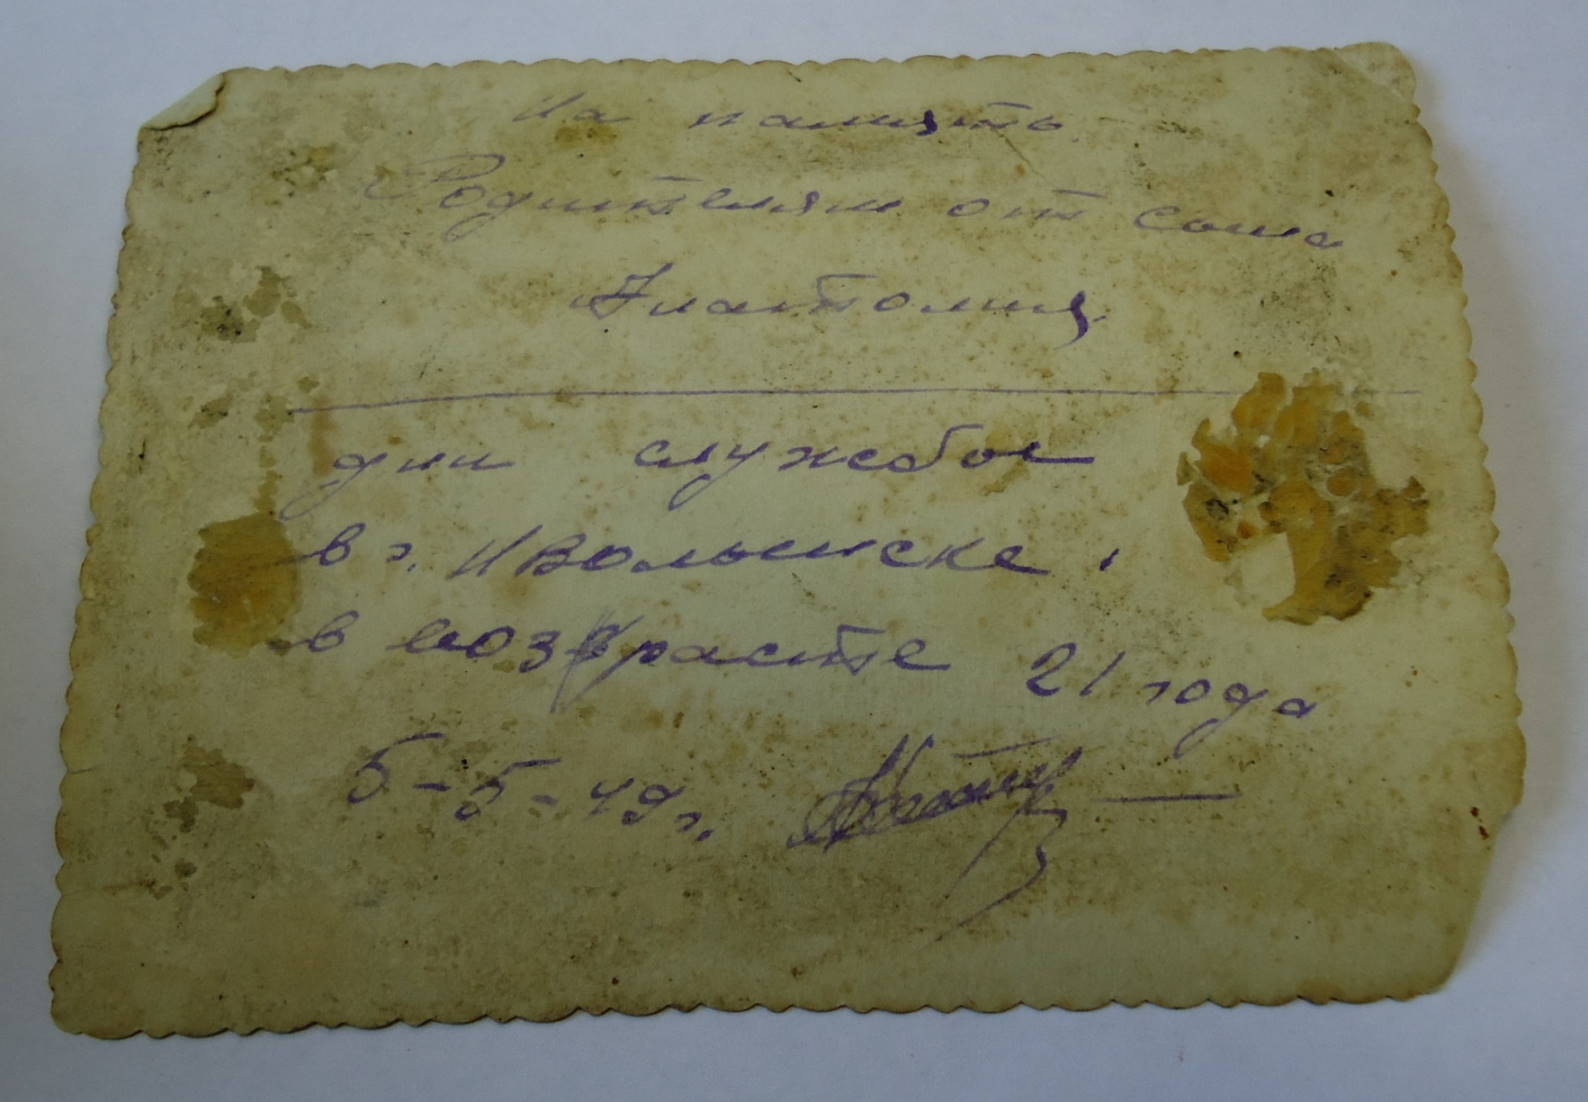 На память
Родителям от сына
Анатолия
дни службы
в г. НВолынске,
в возрасте 21 года
5-5-49г.